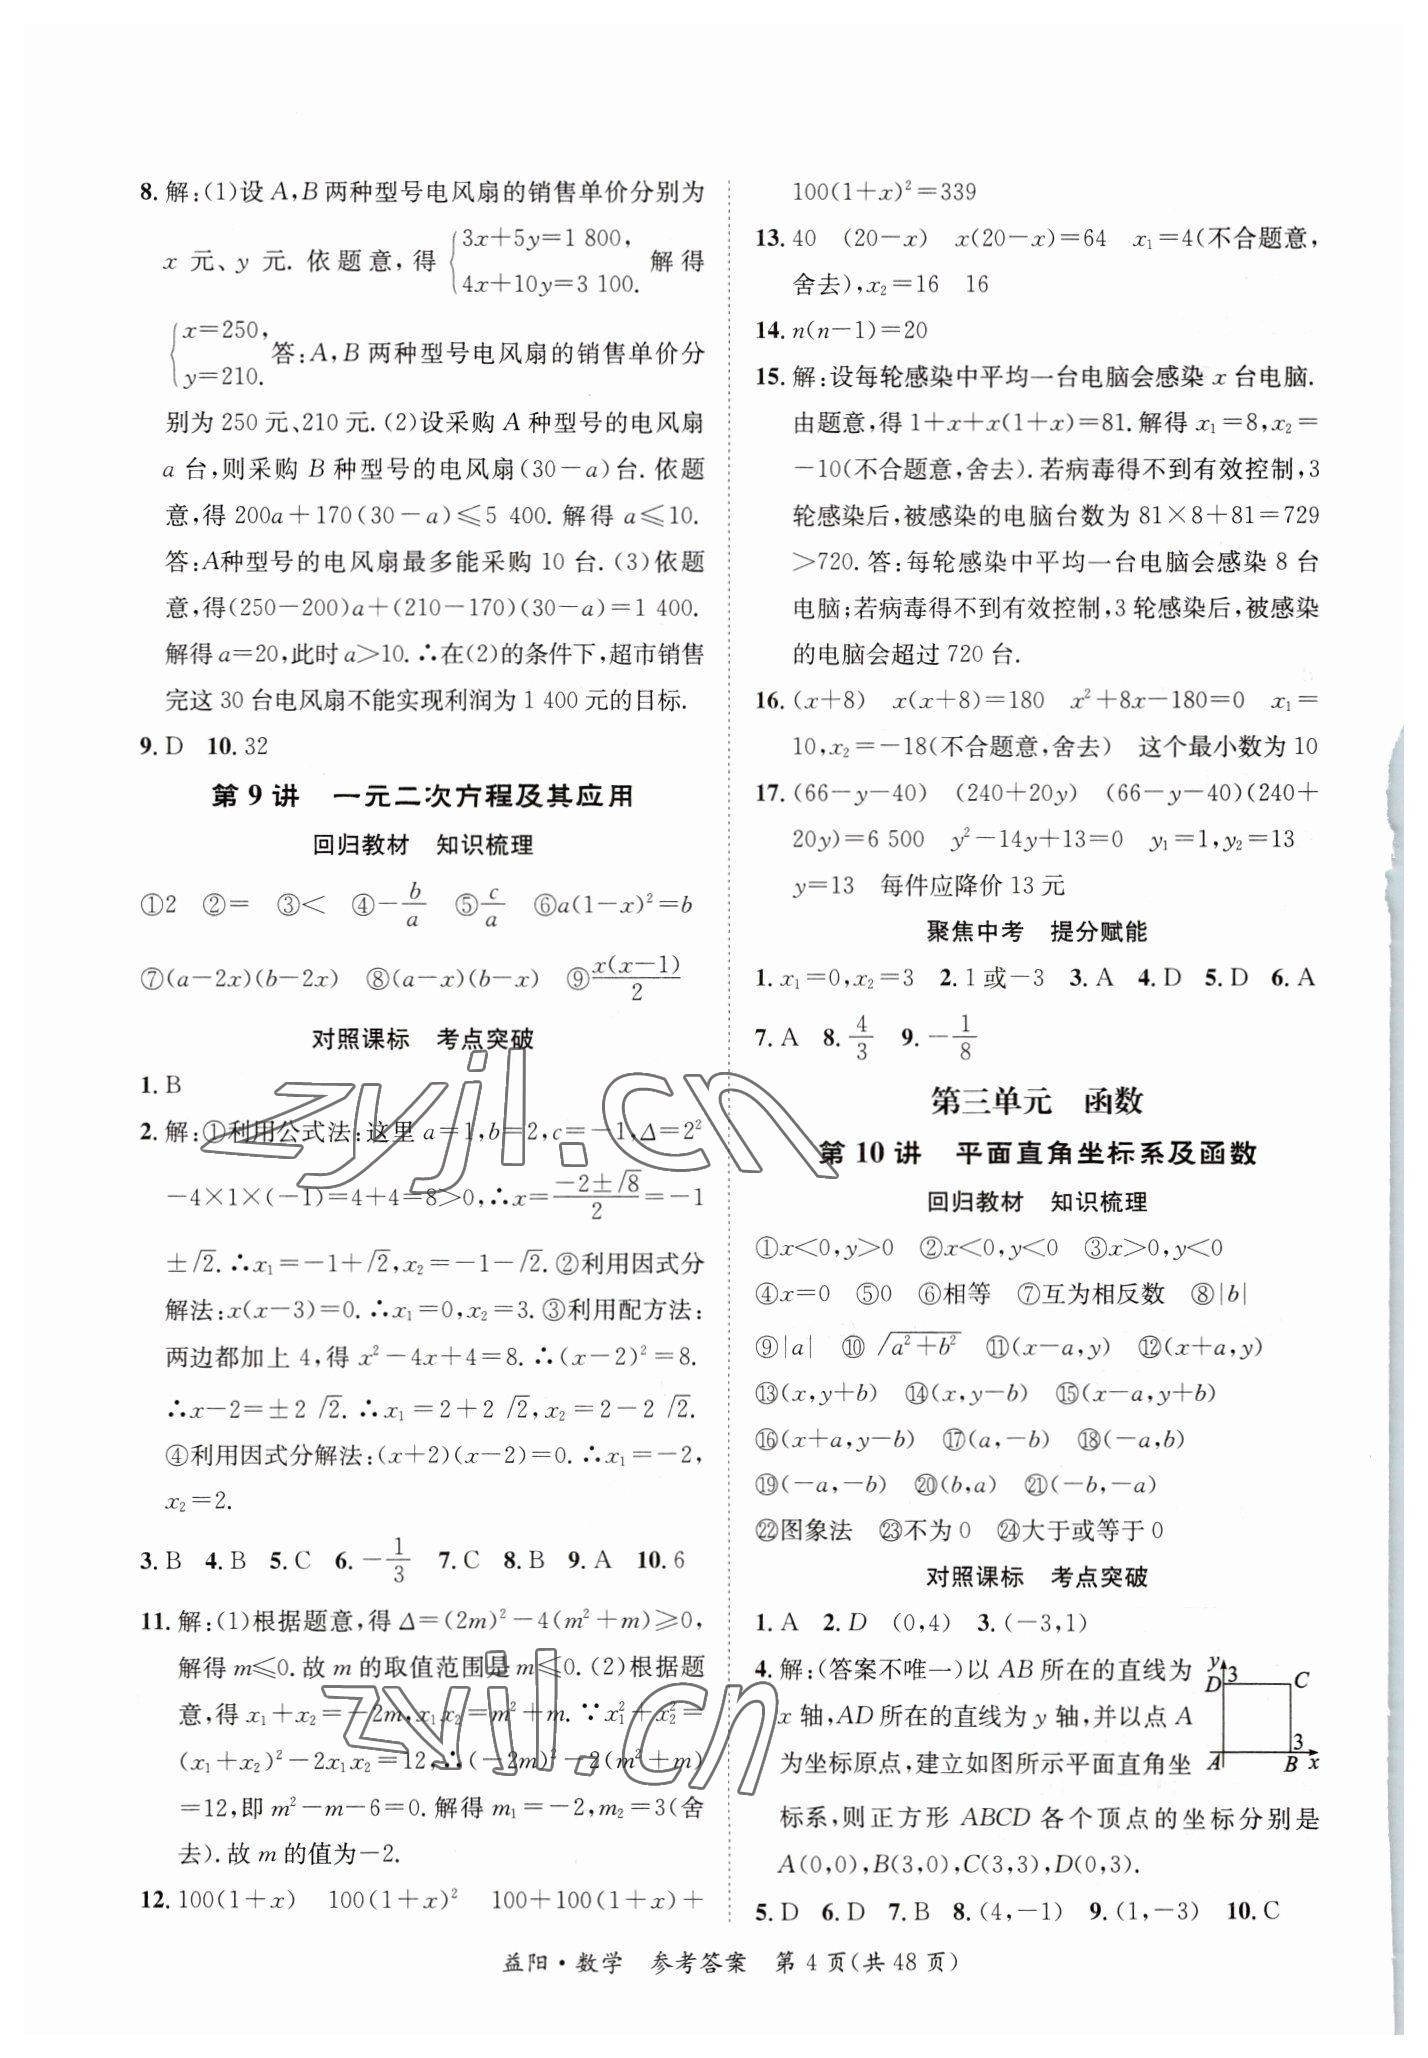 8. 解:(1)设 A,B 两种型号电风扇的销售单价分别为
x 元、y 元. 依题意,得 {3x+5y=1 800, 4x+10y=3 100. 解得
{x=250, y=210. 答:A,B 两种型号电风扇的销售单价分
别为 250 元、210 元. (2)设采购 A 种型号的电风扇
a 台,则采购 B 种型号的电风扇(30-a)台. 依题
意,得 200a+170(30-a)≤5 400. 解得 a≤10.
答:A种型号的电风扇最多能采购 10 台. (3)依题
意,得(250-200)a+(210-170)(30-a)=1 400.
解得 a=20,此时 a>10. ∴在(2)的条件下,超市销售
完这 30 台电风扇不能实现利润为 1 400 元的目标.
9. D 10. 32
第 9 讲 一元二次方程及其应用
回归教材 知识梳理
①2 ②= ③< ④-b/a ⑤c/a ⑥a(1-x)²=b
⑦(a-2x)(b-2x) ⑧(a-x)(b-x) ⑨x(x-1)/2
对照课标 考点突破
1. B
2. 解:①利用公式法:这里 a=1,b=2,c=-1,Δ=2²
-4×1×(-1)=4+4=8>0,∴x=(-2±√8)/2=-1
±√2. ∴x₁=-1+√2,x₂=-1-√2. ②利用因式分
解法:x(x-3)=0. ∴x₁=0,x₂=3. ③利用配方法:
两边都加上 4,得 x²-4x+4=8. ∴(x-2)²=8.
∴x-2=±2√2. ∴x₁=2+2√2,x₂=2-2√2.
④利用因式分解法:(x+2)(x-2)=0. ∴x₁=-2,
x₂=2.
3. B 4. B 5. C 6. -1/3 7. C 8. B 9. A 10. 6
11. 解:(1)根据题意,得 Δ=(2m)²-4(m²+m)≥0,
解得 m≤0. 故 m 的取值范围是 m≤0. (2)根据题
意,得 x₁+x₂=-2m,x₁x₂=m²+m. ∵x₁²+x₂²=
(x₁+x₂)²-2x₁x₂=12,∴(-2m)²-2(m²+m)
=12,即 m²-m-6=0. 解得 m₁=-2,m₂=3(舍
去). 故 m 的值为-2.
12. 100(1+x) 100(1+x)² 100+100(1+x)+
100(1+x)²=339
13. 40 (20-x) x(20-x)=64 x₁=4(不合题意,
舍去),x₂=16 16
14. n(n-1)=20
15. 解:设每轮感染中平均一台电脑会感染 x 台电脑.
由题意,得 1+x+x(1+x)=81. 解得 x₁=8,x₂=
-10(不合题意,舍去). 若病毒得不到有效控制,3
轮感染后,被感染的电脑台数为 81×8+81=729
>720. 答:每轮感染中平均一台电脑会感染 8 台
电脑;若病毒得不到有效控制,3 轮感染后,被感染
的电脑会超过 720 台.
16. (x+8) x(x+8)=180 x²+8x-180=0 x₁=
10,x₂=-18(不合题意,舍去) 这个最小数为 10
17. (66-y-40) (240+20y) (66-y-40)(240+
20y)=6 500 y²-14y+13=0 y₁=1,y₂=13
y=13 每件应降价 13 元
聚焦中考 提分赋能
1. x₁=0,x₂=3 2. 1 或-3 3. A 4. D 5. D 6. A
7. A 8. 4/3 9. -1/8
第三单元 函数
第 10 讲 平面直角坐标系及函数
回归教材 知识梳理
①x<0,y>0 ②x<0,y<0 ③x>0,y<0
④x=0 ⑤0 ⑥相等 ⑦互为相反数 ⑧|b|
⑨|a| ⑩√(a²+b²) ⑪(x-a,y) ⑫(x+a,y)
⑬(x,y+b) ⑭(x,y-b) ⑮(x-a,y+b)
⑯(x+a,y-b) ⑰(a,-b) ⑱(-a,b)
⑲(-a,-b) ⑳(b,a) ㉑(-b,-a)
㉒图象法 ㉓不为 0 ㉔大于或等于 0
对照课标 考点突破
1. A 2. D (0,4) 3. (-3,1)
4. 解:(答案不唯一)以 AB 所在的直线为
x 轴,AD 所在的直线为 y 轴,并以点 A
为坐标原点,建立如图所示平面直角坐
标系,则正方形 ABCD 各个顶点的坐标分别是
A(0,0),B(3,0),C(3,3),D(0,3).
y
D 3 C
3
A B x
5. D 6. D 7. B 8. (4,-1) 9. (1,-3) 10. C
益阳·数学 参考答案 第 4 页(共 48 页)
zyjl.cn
zyjl.cn